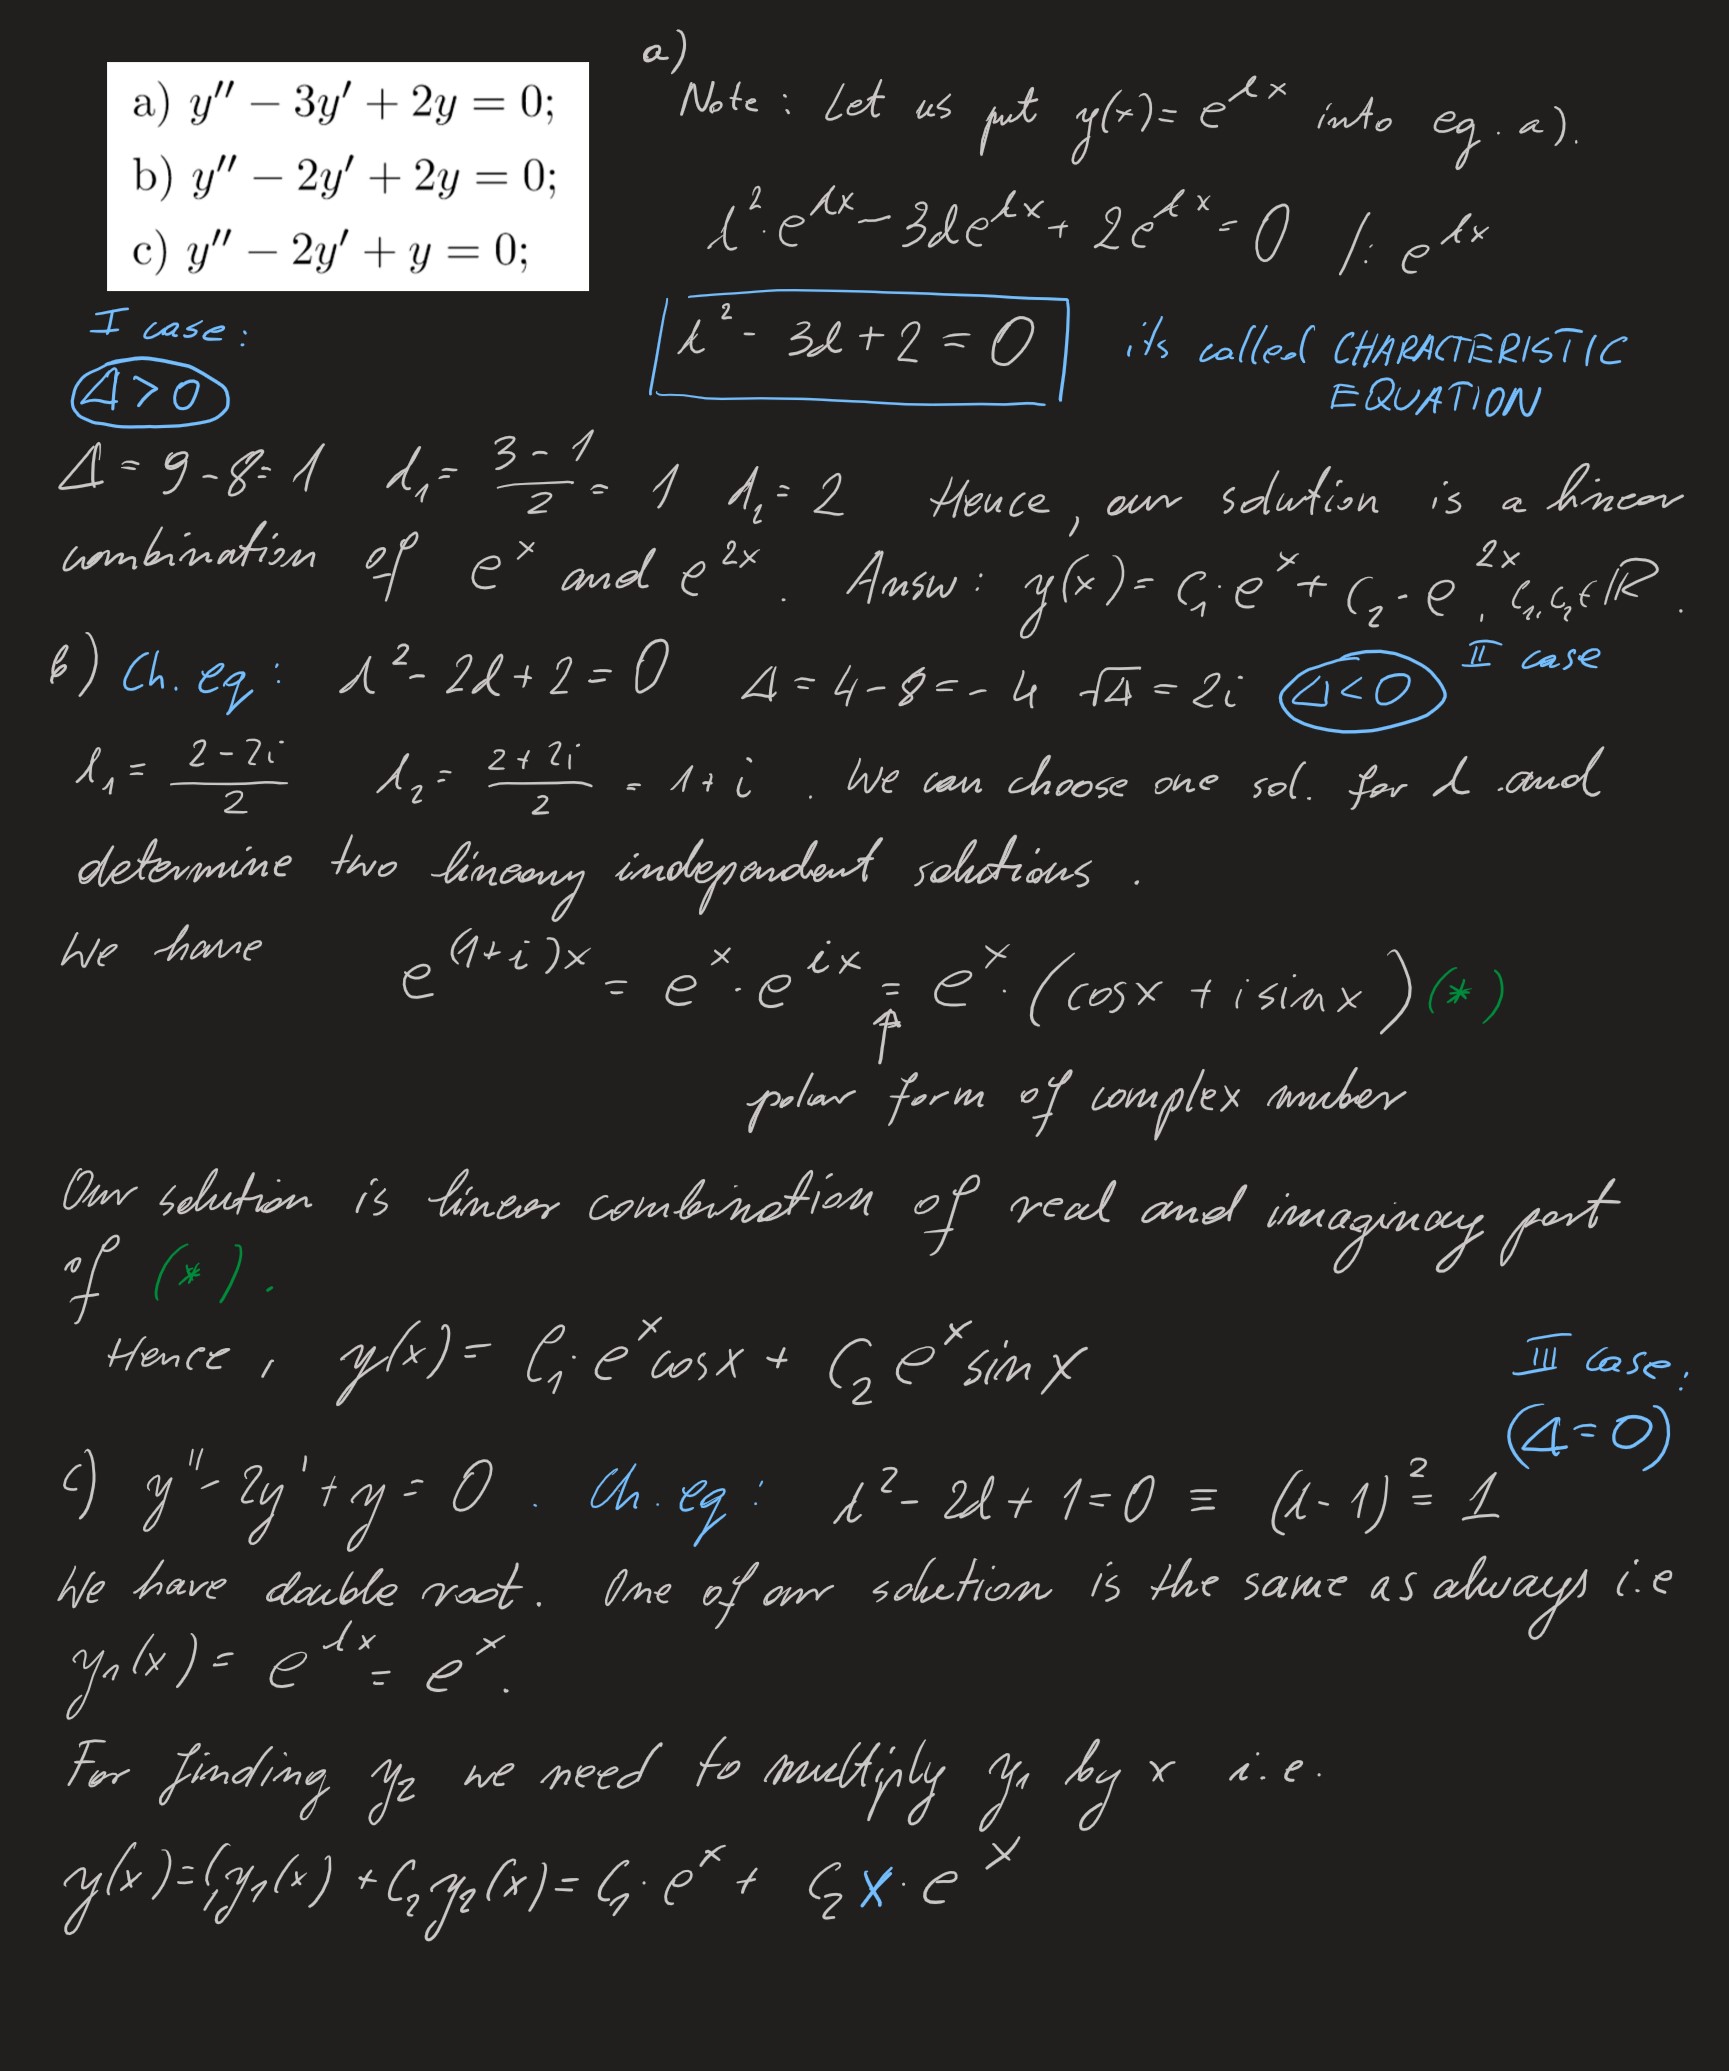 a) y'' − 3y' + 2y = 0;
b) y'' − 2y' + 2y = 0;
c) y'' − 2y' + y = 0;
a)
Note : Let us put y(x) = e^{λx} into eq. a).
λ²·e^{λx} − 3λe^{λx} + 2e^{λx} = 0 /: e^{λx}
I case :
Δ > 0
λ² - 3λ + 2 = 0 its called CHARACTERISTIC
EQUATION
Δ = 9 - 8 = 1 λ₁ = (3 - 1)/2 = 1 λ₂ = 2 Hence, our solution is a linear
combination of e^x and e^{2x}. Answ : y(x) = C₁·e^x + C₂·e^{2x}, C₁, C₂ ∈ ℝ.
b) Ch. eq : λ² - 2λ + 2 = 0 Δ = 4 - 8 = - 4 √Δ = 2i Δ < 0 II case
λ₁ = (2 - 2i)/2 λ₂ = (2 + 2i)/2 = 1 + i . We can choose one sol. for λ and
determine two lineary independent solutions .
We have e^{(1+i)x} = e^x · e^{ix} = e^x · (cosx + isinx) (*)
↑
polar form of complex number
Our solution is linear combination of real and imaginay part
of (*).
Hence, y(x) = C₁·e^x cosx + C₂ e^x sinx
III case:
(Δ = 0)
c) y'' - 2y' + y = 0 . Ch. eq : λ² - 2λ + 1 = 0 ≡ (λ - 1)² = 1
We have double root. One of our solution is the same as always i.e
y₁(x) = e^{λx} = e^x.
For finding y₂ we need to multiply y₁ by x i.e.
y(x) = C₁y₁(x) + C₂y₂(x) = C₁·e^x + C₂ x·e^x